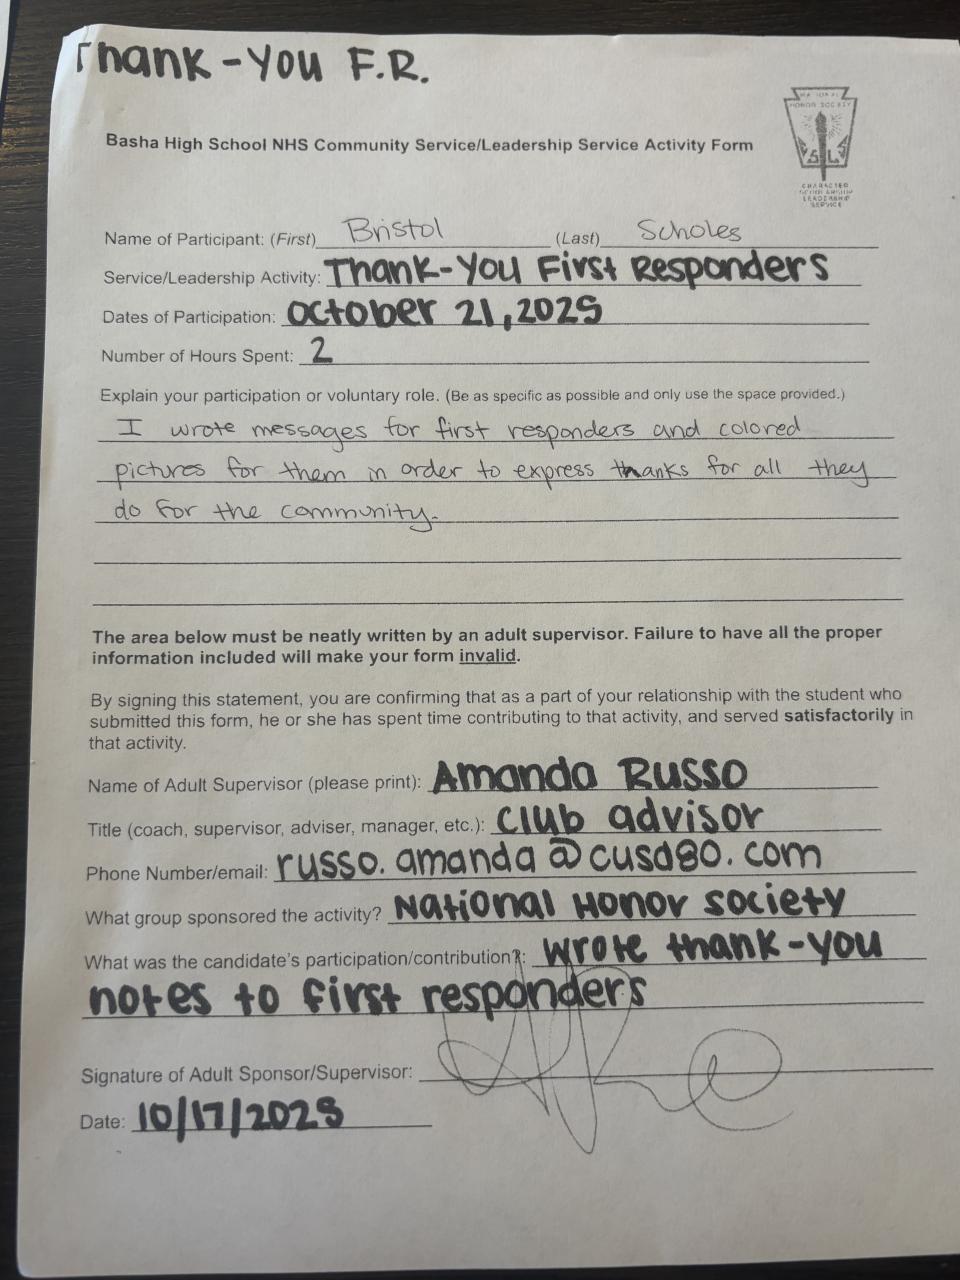 Thank-You F.R.
NATIONAL
HONOR SOCIETY
S L
CHARACTER
SCHOLARSHIP
LEADERSHIP
SERVICE
Basha High School NHS Community Service/Leadership Service Activity Form
Name of Participant: (First) Bristol (Last) Scholes
Service/Leadership Activity: Thank-You First Responders
Dates of Participation: October 21, 2025
Number of Hours Spent: 2
Explain your participation or voluntary role. (Be as specific as possible and only use the space provided.)
I wrote messages for first responders and colored
pictures for them in order to express thanks for all they
do for the community.
The area below must be neatly written by an adult supervisor. Failure to have all the proper
information included will make your form invalid.
By signing this statement, you are confirming that as a part of your relationship with the student who
submitted this form, he or she has spent time contributing to that activity, and served satisfactorily in
that activity.
Name of Adult Supervisor (please print): Amanda Russo
Title (coach, supervisor, adviser, manager, etc.): Club advisor
Phone Number/email: russo.amanda@cusd80.com
What group sponsored the activity? National Honor Society
What was the candidate's participation/contribution?: Wrote thank-you
notes to first responders
Signature of Adult Sponsor/Supervisor:
Date: 10/17/2025